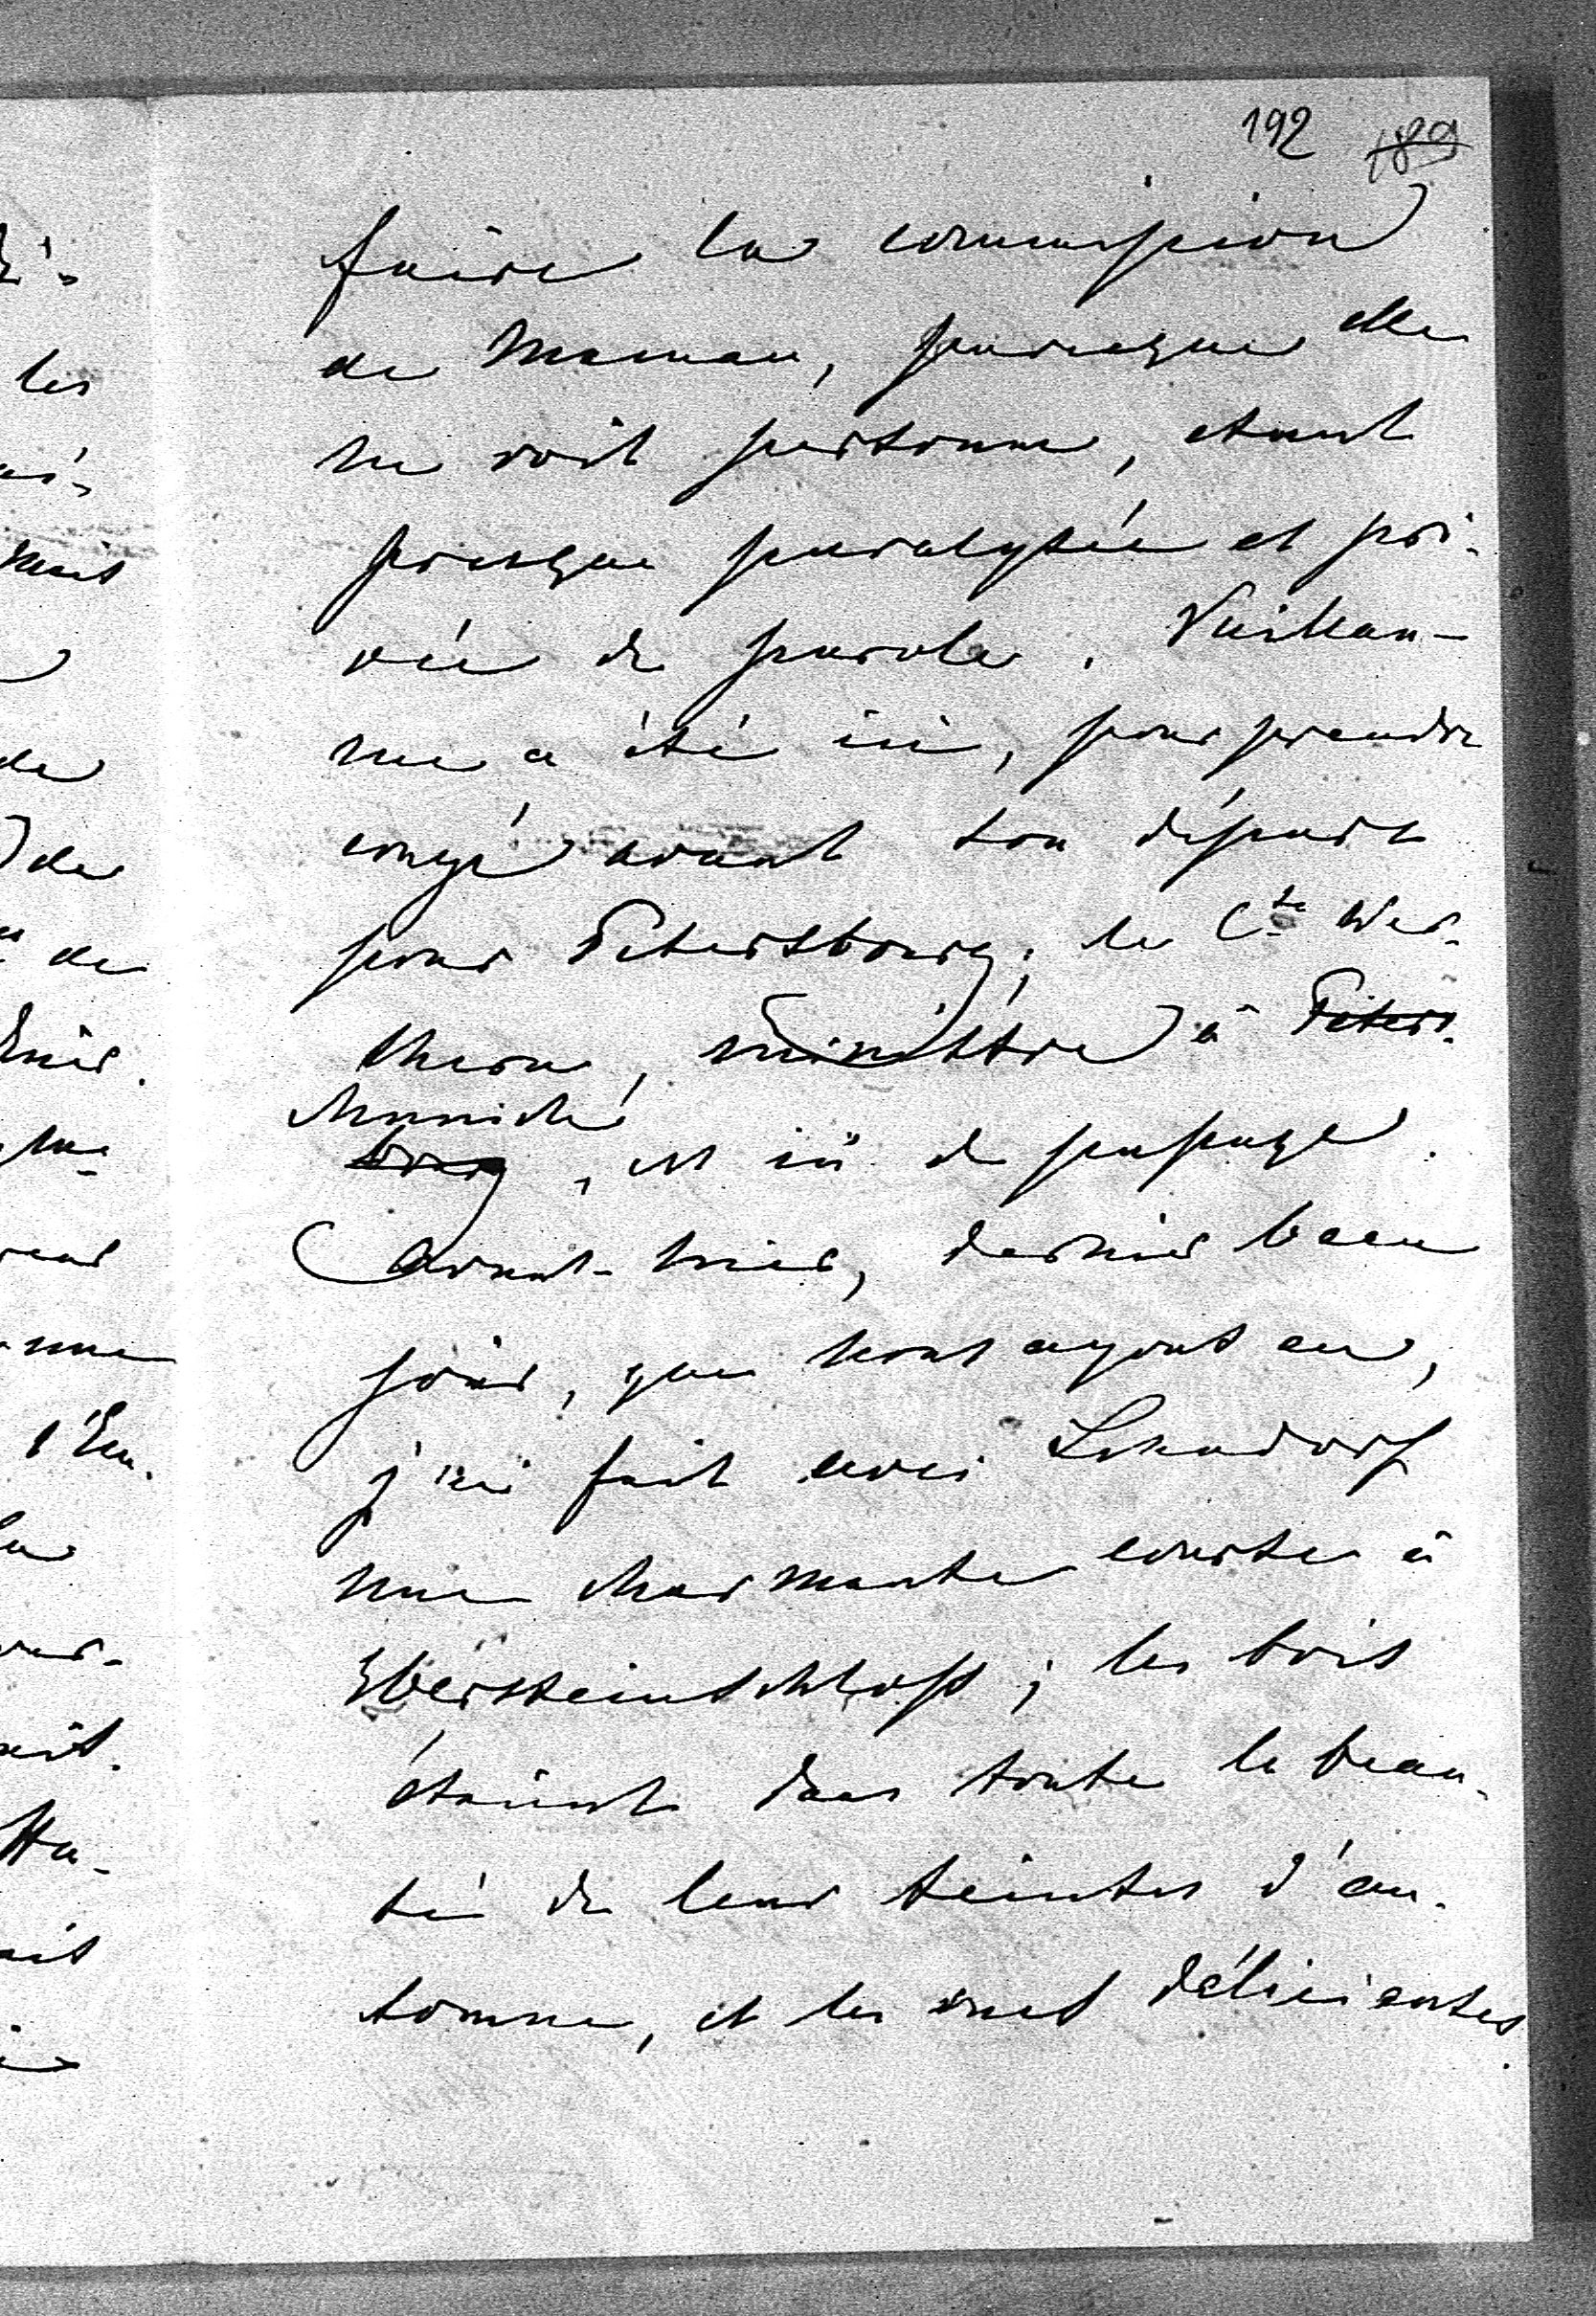 192 189
faire la commission
de Maman, parceque elle
ne voit personne, étant
presque paralysée et pri-
vée de parole.
me a été ici, pour prendre
congé avant son départ
pour Petersbourg; le Cte Wer-
thern, ministre à Peters-
Munich
bourg, est ici de passage.
Avant-hier, dernier beau
jour, que nous ayons eu,
j'ai fait avec Lehndorf
une charmante course à
Ebersteinschloss; les bois
étaient dans toute la beau-
té de leur teintes d'au-
tomne, et les vues délicieuses.
les
mais
de
de
de